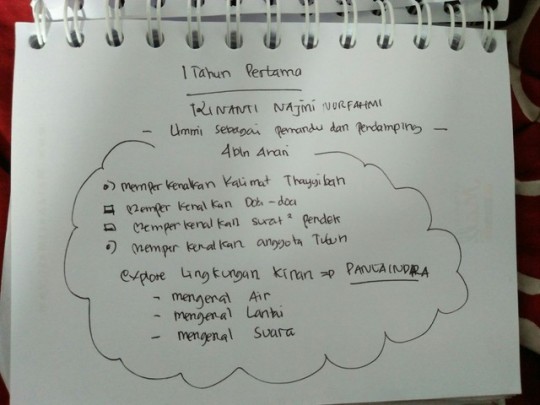 1 Tahun Pertama
KINANTI NAJini NURFAHMI
- Ummi sebagai pemandu dan Pendamping -
4bln Awal
memper kenalkan Kalimat Thayyibah
memper kenalkan Doa-doa
memper kenalkan surat² pendek
memper kenalkan anggota Tubuh
explore Lingkungan Kinan => PANCAINDRA
- mengenal Air
- mengenal Lantai
- mengenal Suara